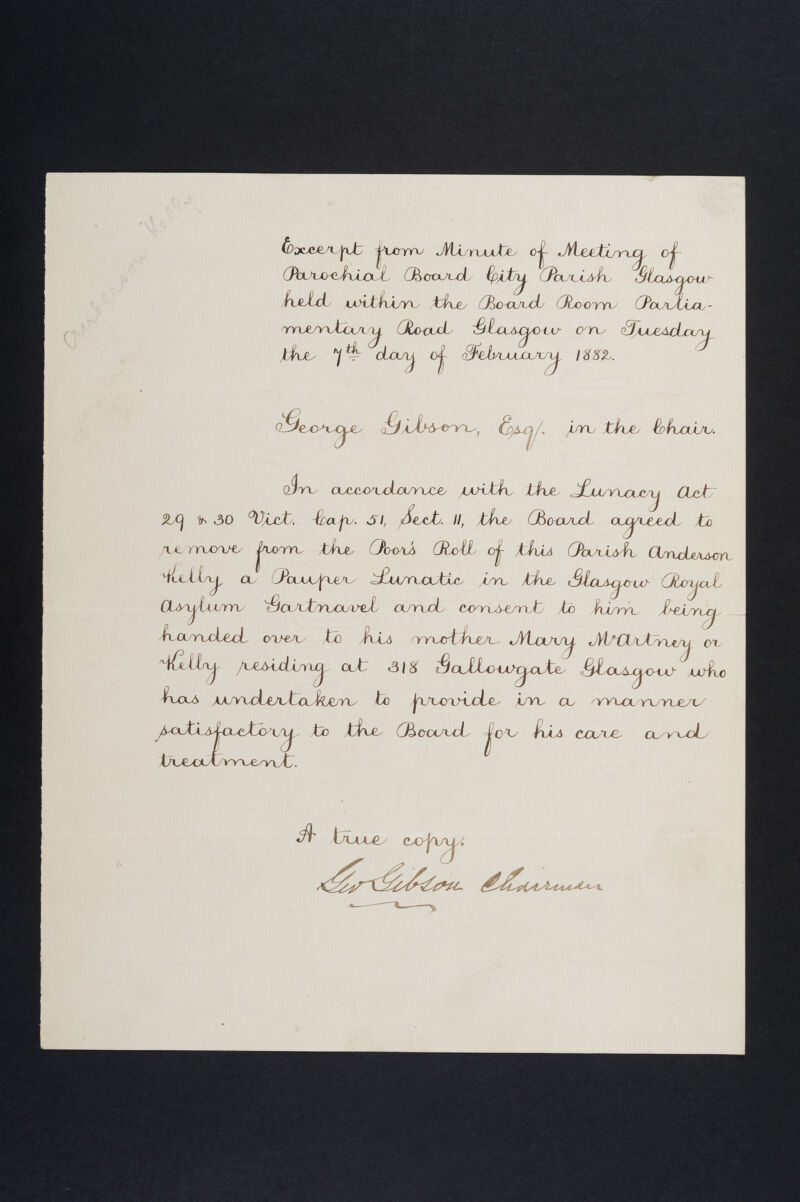 Anderson Kelly
Excerpt from Minute of Meeting of
Parochial Board City Parish Glasgow
held within the Board Room Parlia-
mentary Road Glasgow on Tuesday
the 7th day of February 1882.
George Gibson, Esq/. in the Chair.
In accordance with the Lunacy Act
29 & 30 Vict. Cap. 51, Sect. 11, the Board agreed to
remove from the Poor's Roll of this Parish Anderson
Kelly a Pauper Lunatic in the Glasgow Royal
Asylum Gartnavel and consent to him being
handed over to his mother Mary McArtney or
Kelly residing at 318 Gallowgate Glasgow who
has undertaken to provide in a manner
satisfactory to the Board for his care and
treatment.
A true copy.
Geo Gibson Chairman